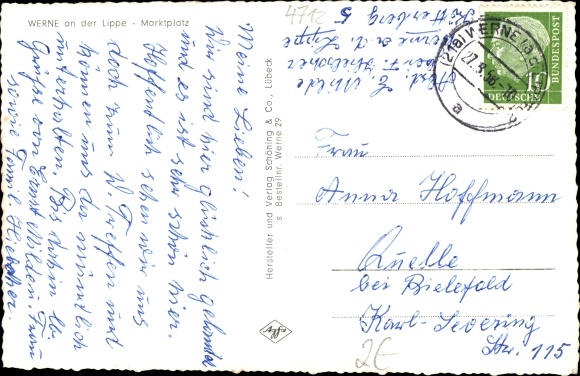 WERNE an der Lippe - Marktplatz
4712
Meine Lieben!
Wir sind hier glücklich gelandet
und es ist sehr schön hier.
Hoffentlich sehen wir uns
doch zum Treffen und
können uns da mündlich
unterhalten. Bis dahin lb.
Grüße von Ernst Wilde u. Frau
sowie Familie
Abs. E. Wilde
Werne a. d. Lippe
5
Hersteller und Verlag Schöning & Co., Lübeck
s Bestellnr. Werne 29
(21a) WERNE
22.8.
a
10
DEUTSCHE
BUNDESPOST
Frau
Anna Hoffmann
Quelle
bei Bielefeld
Karl-Severing
Str. 115
2€